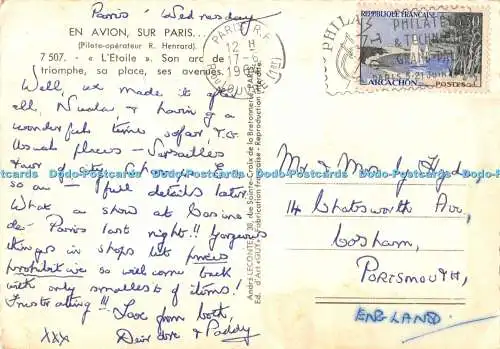 Paris. Wednesday
EN AVION, SUR PARIS...
(Pilote-opérateur R. Henrard).
7 507. - « L'Etoile ». Son arc de
triomphe, sa place, ses avenues.
Well, we made it after
all, & having a
wonderful time so far. V.G.
Usual places - Versailles
tour of city
so on - full details later.
What a show at Casino
de Paris last night!! Gorgeous
things in shops but prices
prohibitive so will come back
with only smallest of items!
Frustrating!!! Love from both,
xxx Deirdre & Paddy
André LECONTE, 38, rue Sainte-Croix de la Bretonnerie
Ed. d'Art «GUY» Fabrication française - Reproduction interdite
PARIS R.P.
12 H
17-6
PHILATEC
& TECHNIQUE
GRAND PALAIS
PARIS 5-21 JUIN
REPUBLIQUE FRANÇAISE
0,30
ARCACHON
POSTES
Mr & Mrs
14 Chatsworth Av,
Cosham,
PORTSMOUTH,
ENGLAND.
Dodo-Postcards Dodo-Postcards Dodo-Postcards Dodo-Postcards